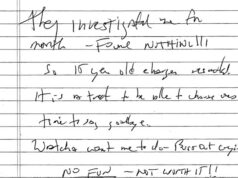 They investigated me for
month – Found NOTHING!!!
So 15 year old charges resulted.
It is a treat to be able to choose ones
time to say goodbye.
Watcha want me to do – Burst out cryin
NO FUN – NOT WORTH IT!!